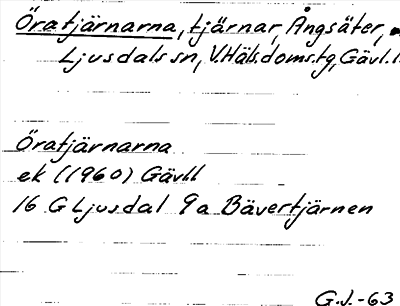 Öratjärnarna, tjärnar, Ångsäter,
Ljusdals sn, V.Häls.doms.tg, Gävl.l.
Öratjärnarna
ek (1960) Gävll
16 G Ljusdal 9a Bävertjärnen
G.J.-63